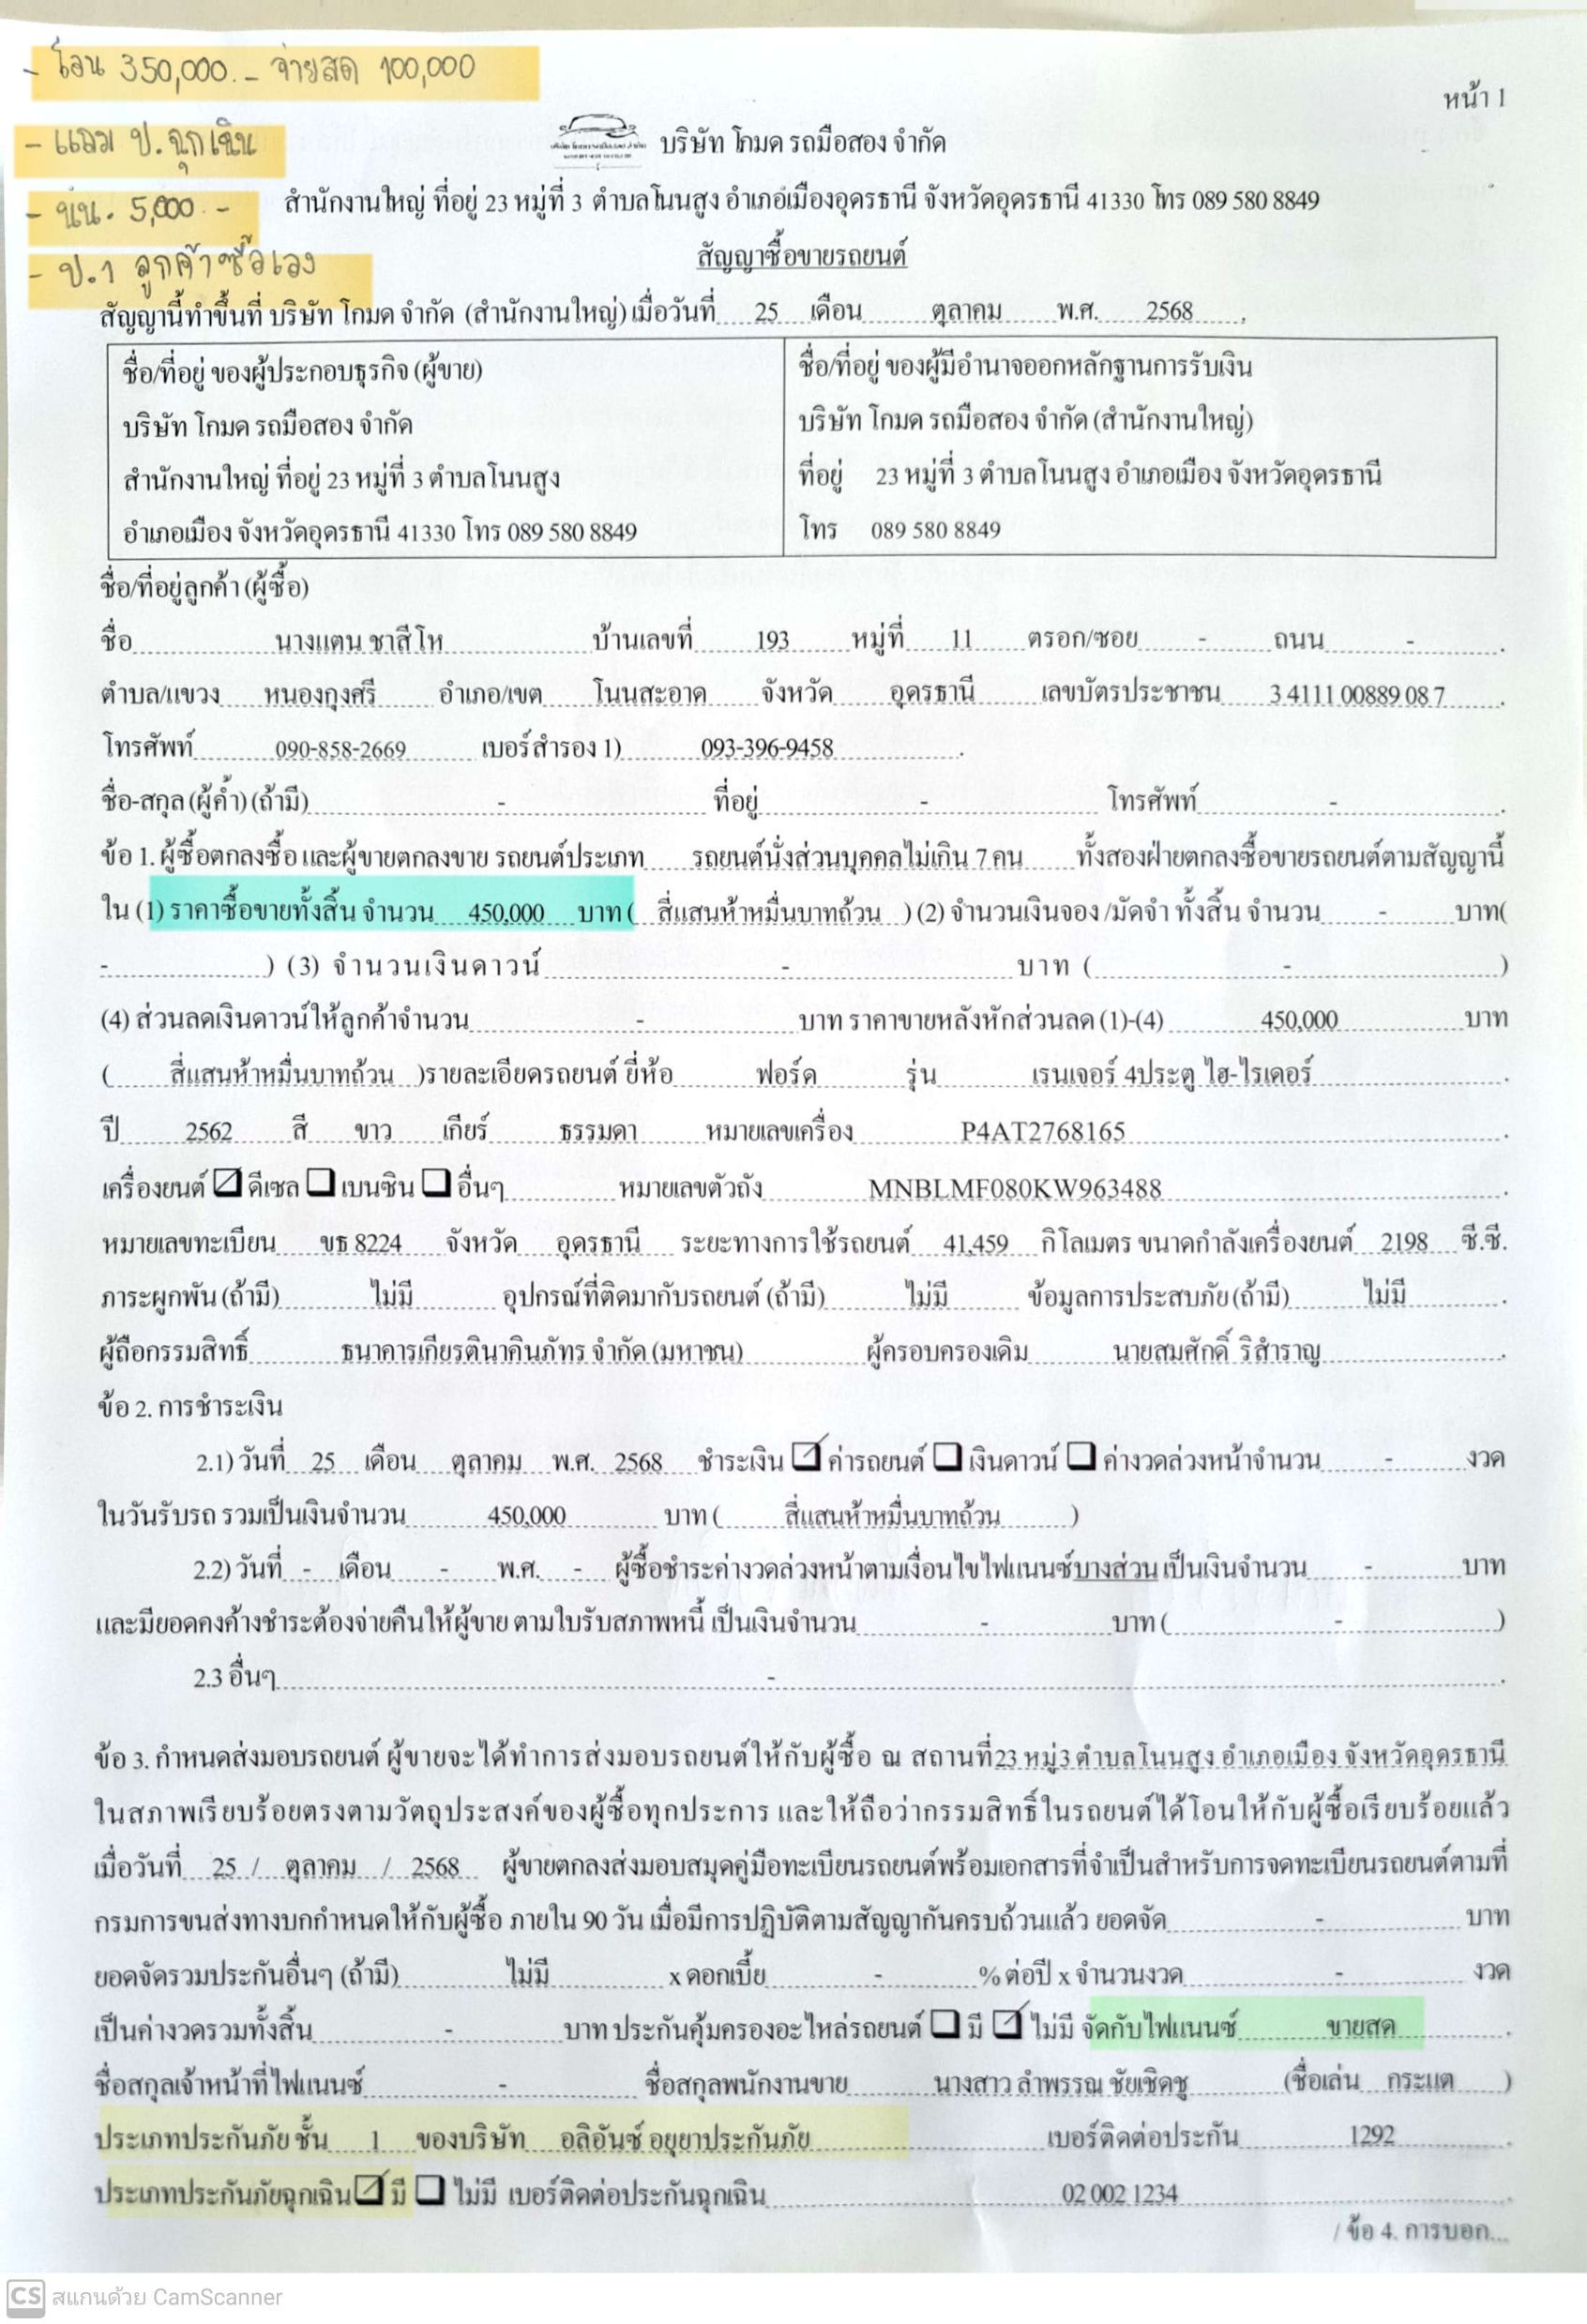 - โอน 350,000.- จ่ายสด 100,000
- แถม ป.ฉุกเฉิน
- นน. 5,000.-
- ป.1 ลูกค้าซื้อเอง
หน้า 1
บริษัท โกมด รถมือสอง จำกัด
สำนักงานใหญ่ ที่อยู่ 23 หมู่ที่ 3 ตำบลโนนสูง อำเภอเมืองอุดรธานี จังหวัดอุดรธานี 41330 โทร 089 580 8849
สัญญาซื้อขายรถยนต์
สัญญานี้ทำขึ้นที่ บริษัท โกมด จำกัด (สำนักงานใหญ่) เมื่อวันที่ 25 เดือน ตุลาคม พ.ศ. 2568 .
ชื่อ/ที่อยู่ ของผู้ประกอบธุรกิจ (ผู้ขาย)
บริษัท โกมด รถมือสอง จำกัด
สำนักงานใหญ่ ที่อยู่ 23 หมู่ที่ 3 ตำบลโนนสูง
อำเภอเมือง จังหวัดอุดรธานี 41330 โทร 089 580 8849
ชื่อ/ที่อยู่ ของผู้มีอำนาจออกหลักฐานการรับเงิน
บริษัท โกมด รถมือสอง จำกัด (สำนักงานใหญ่)
ที่อยู่ 23 หมู่ที่ 3 ตำบลโนนสูง อำเภอเมือง จังหวัดอุดรธานี
โทร 089 580 8849
ชื่อ/ที่อยู่ลูกค้า (ผู้ซื้อ)
ชื่อ นางแตน ชาสีโห บ้านเลขที่ 193 หมู่ที่ 11 ตรอก/ซอย - ถนน - .
ตำบล/แขวง หนองกุงศรี อำเภอ/เขต โนนสะอาด จังหวัด อุดรธานี เลขบัตรประชาชน 3 4111 00889 08 7 .
โทรศัพท์ 090-858-2669 เบอร์สำรอง 1) 093-396-9458 .
ชื่อ-สกุล (ผู้ค้ำ) (ถ้ามี) - ที่อยู่ - โทรศัพท์ - .
ข้อ 1. ผู้ซื้อตกลงซื้อ และผู้ขายตกลงขาย รถยนต์ประเภท รถยนต์นั่งส่วนบุคคลไม่เกิน 7 คน ทั้งสองฝ่ายตกลงซื้อขายรถยนต์ตามสัญญานี้
ใน (1) ราคาซื้อขายทั้งสิ้น จำนวน 450,000 บาท ( สี่แสนห้าหมื่นบาทถ้วน ) (2) จำนวนเงินจอง /มัดจำ ทั้งสิ้น จำนวน - บาท(
- ) (3) จำนวนเงินดาวน์ - บาท ( - )
(4) ส่วนลดเงินดาวน์ให้ลูกค้าจำนวน - บาท ราคาขายหลังหักส่วนลด (1)-(4) 450,000 บาท
( สี่แสนห้าหมื่นบาทถ้วน )รายละเอียดรถยนต์ ยี่ห้อ ฟอร์ด รุ่น เรนเจอร์ 4ประตู ไฮ-ไรเดอร์ .
ปี 2562 สี ขาว เกียร์ ธรรมดา หมายเลขเครื่อง P4AT2768165 .
เครื่องยนต์ ☑ ดีเซล ☐ เบนซิน ☐ อื่นๆ หมายเลขตัวถัง MNBLMF080KW963488 .
หมายเลขทะเบียน ขธ 8224 จังหวัด อุดรธานี ระยะทางการใช้รถยนต์ 41,459 กิโลเมตร ขนาดกำลังเครื่องยนต์ 2198 ซี.ซี.
ภาระผูกพัน (ถ้ามี) ไม่มี อุปกรณ์ที่ติดมากับรถยนต์ (ถ้ามี) ไม่มี ข้อมูลการประสบภัย (ถ้ามี) ไม่มี .
ผู้ถือกรรมสิทธิ์ ธนาคารเกียรตินาคินภัทร จำกัด (มหาชน) ผู้ครอบครองเดิม นายสมศักดิ์ ริสำราญ .
ข้อ 2. การชำระเงิน
2.1) วันที่ 25 เดือน ตุลาคม พ.ศ. 2568 ชำระเงิน ☑ ค่ารถยนต์ ☐ เงินดาวน์ ☐ ค่างวดล่วงหน้าจำนวน - งวด
ในวันรับรถ รวมเป็นเงินจำนวน 450,000 บาท ( สี่แสนห้าหมื่นบาทถ้วน )
2.2) วันที่ - เดือน - พ.ศ. - ผู้ซื้อชำระค่างวดล่วงหน้าตามเงื่อนไขไฟแนนซ์บางส่วน เป็นเงินจำนวน - บาท
และมียอดคงค้างชำระต้องจ่ายคืนให้ผู้ขาย ตามใบรับสภาพหนี้ เป็นเงินจำนวน - บาท ( - )
2.3 อื่นๆ - .
ข้อ 3. กำหนดส่งมอบรถยนต์ ผู้ขายจะได้ทำการส่งมอบรถยนต์ให้กับผู้ซื้อ ณ สถานที่23 หมู่3 ตำบลโนนสูง อำเภอเมือง จังหวัดอุดรธานี
ในสภาพเรียบร้อยตรงตามวัตถุประสงค์ของผู้ซื้อทุกประการ และให้ถือว่ากรรมสิทธิ์ในรถยนต์ได้โอนให้กับผู้ซื้อเรียบร้อยแล้ว
เมื่อวันที่ 25 / ตุลาคม / 2568 ผู้ขายตกลงส่งมอบสมุดคู่มือทะเบียนรถยนต์พร้อมเอกสารที่จำเป็นสำหรับการจดทะเบียนรถยนต์ตามที่
กรมการขนส่งทางบกกำหนดให้กับผู้ซื้อ ภายใน 90 วัน เมื่อมีการปฏิบัติตามสัญญากันครบถ้วนแล้ว ยอดจัด - บาท
ยอดจัดรวมประกันอื่นๆ (ถ้ามี) ไม่มี x ดอกเบี้ย - % ต่อปี x จำนวนงวด - งวด
เป็นค่างวดรวมทั้งสิ้น - บาท ประกันคุ้มครองอะไหล่รถยนต์ ☐ มี ☑ ไม่มี จัดกับไฟแนนซ์ ขายสด .
ชื่อสกุลเจ้าหน้าที่ไฟแนนซ์ - ชื่อสกุลพนักงานขาย นางสาว ลำพรรณ ชัยเชิดชู (ชื่อเล่น กระแต )
ประเภทประกันภัย ชั้น 1 ของบริษัท อลิอันซ์ อยุยาประกันภัย เบอร์ติดต่อประกัน 1292 .
ประเภทประกันภัยฉุกเฉิน ☑ มี ☐ ไม่มี เบอร์ติดต่อประกันฉุกเฉิน 02 002 1234 .
/ ข้อ 4. การบอก...
CS สแกนด้วย CamScanner